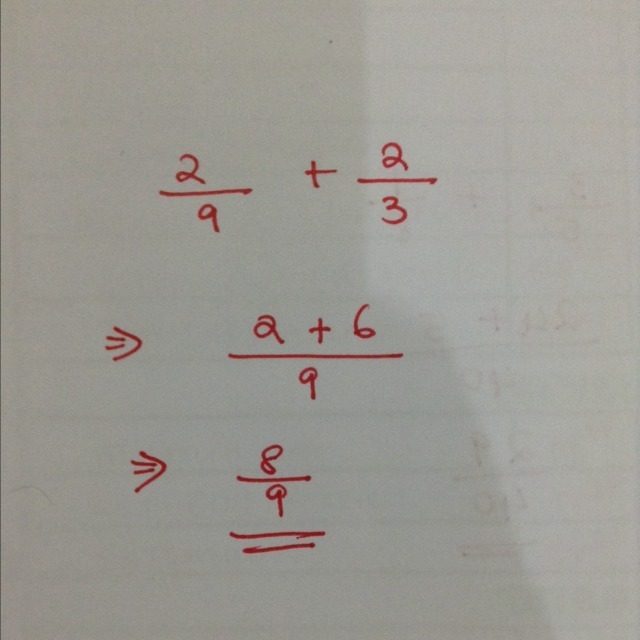 2/9 + 2/3
⇒ (2 + 6)/9
⇒ 8/9